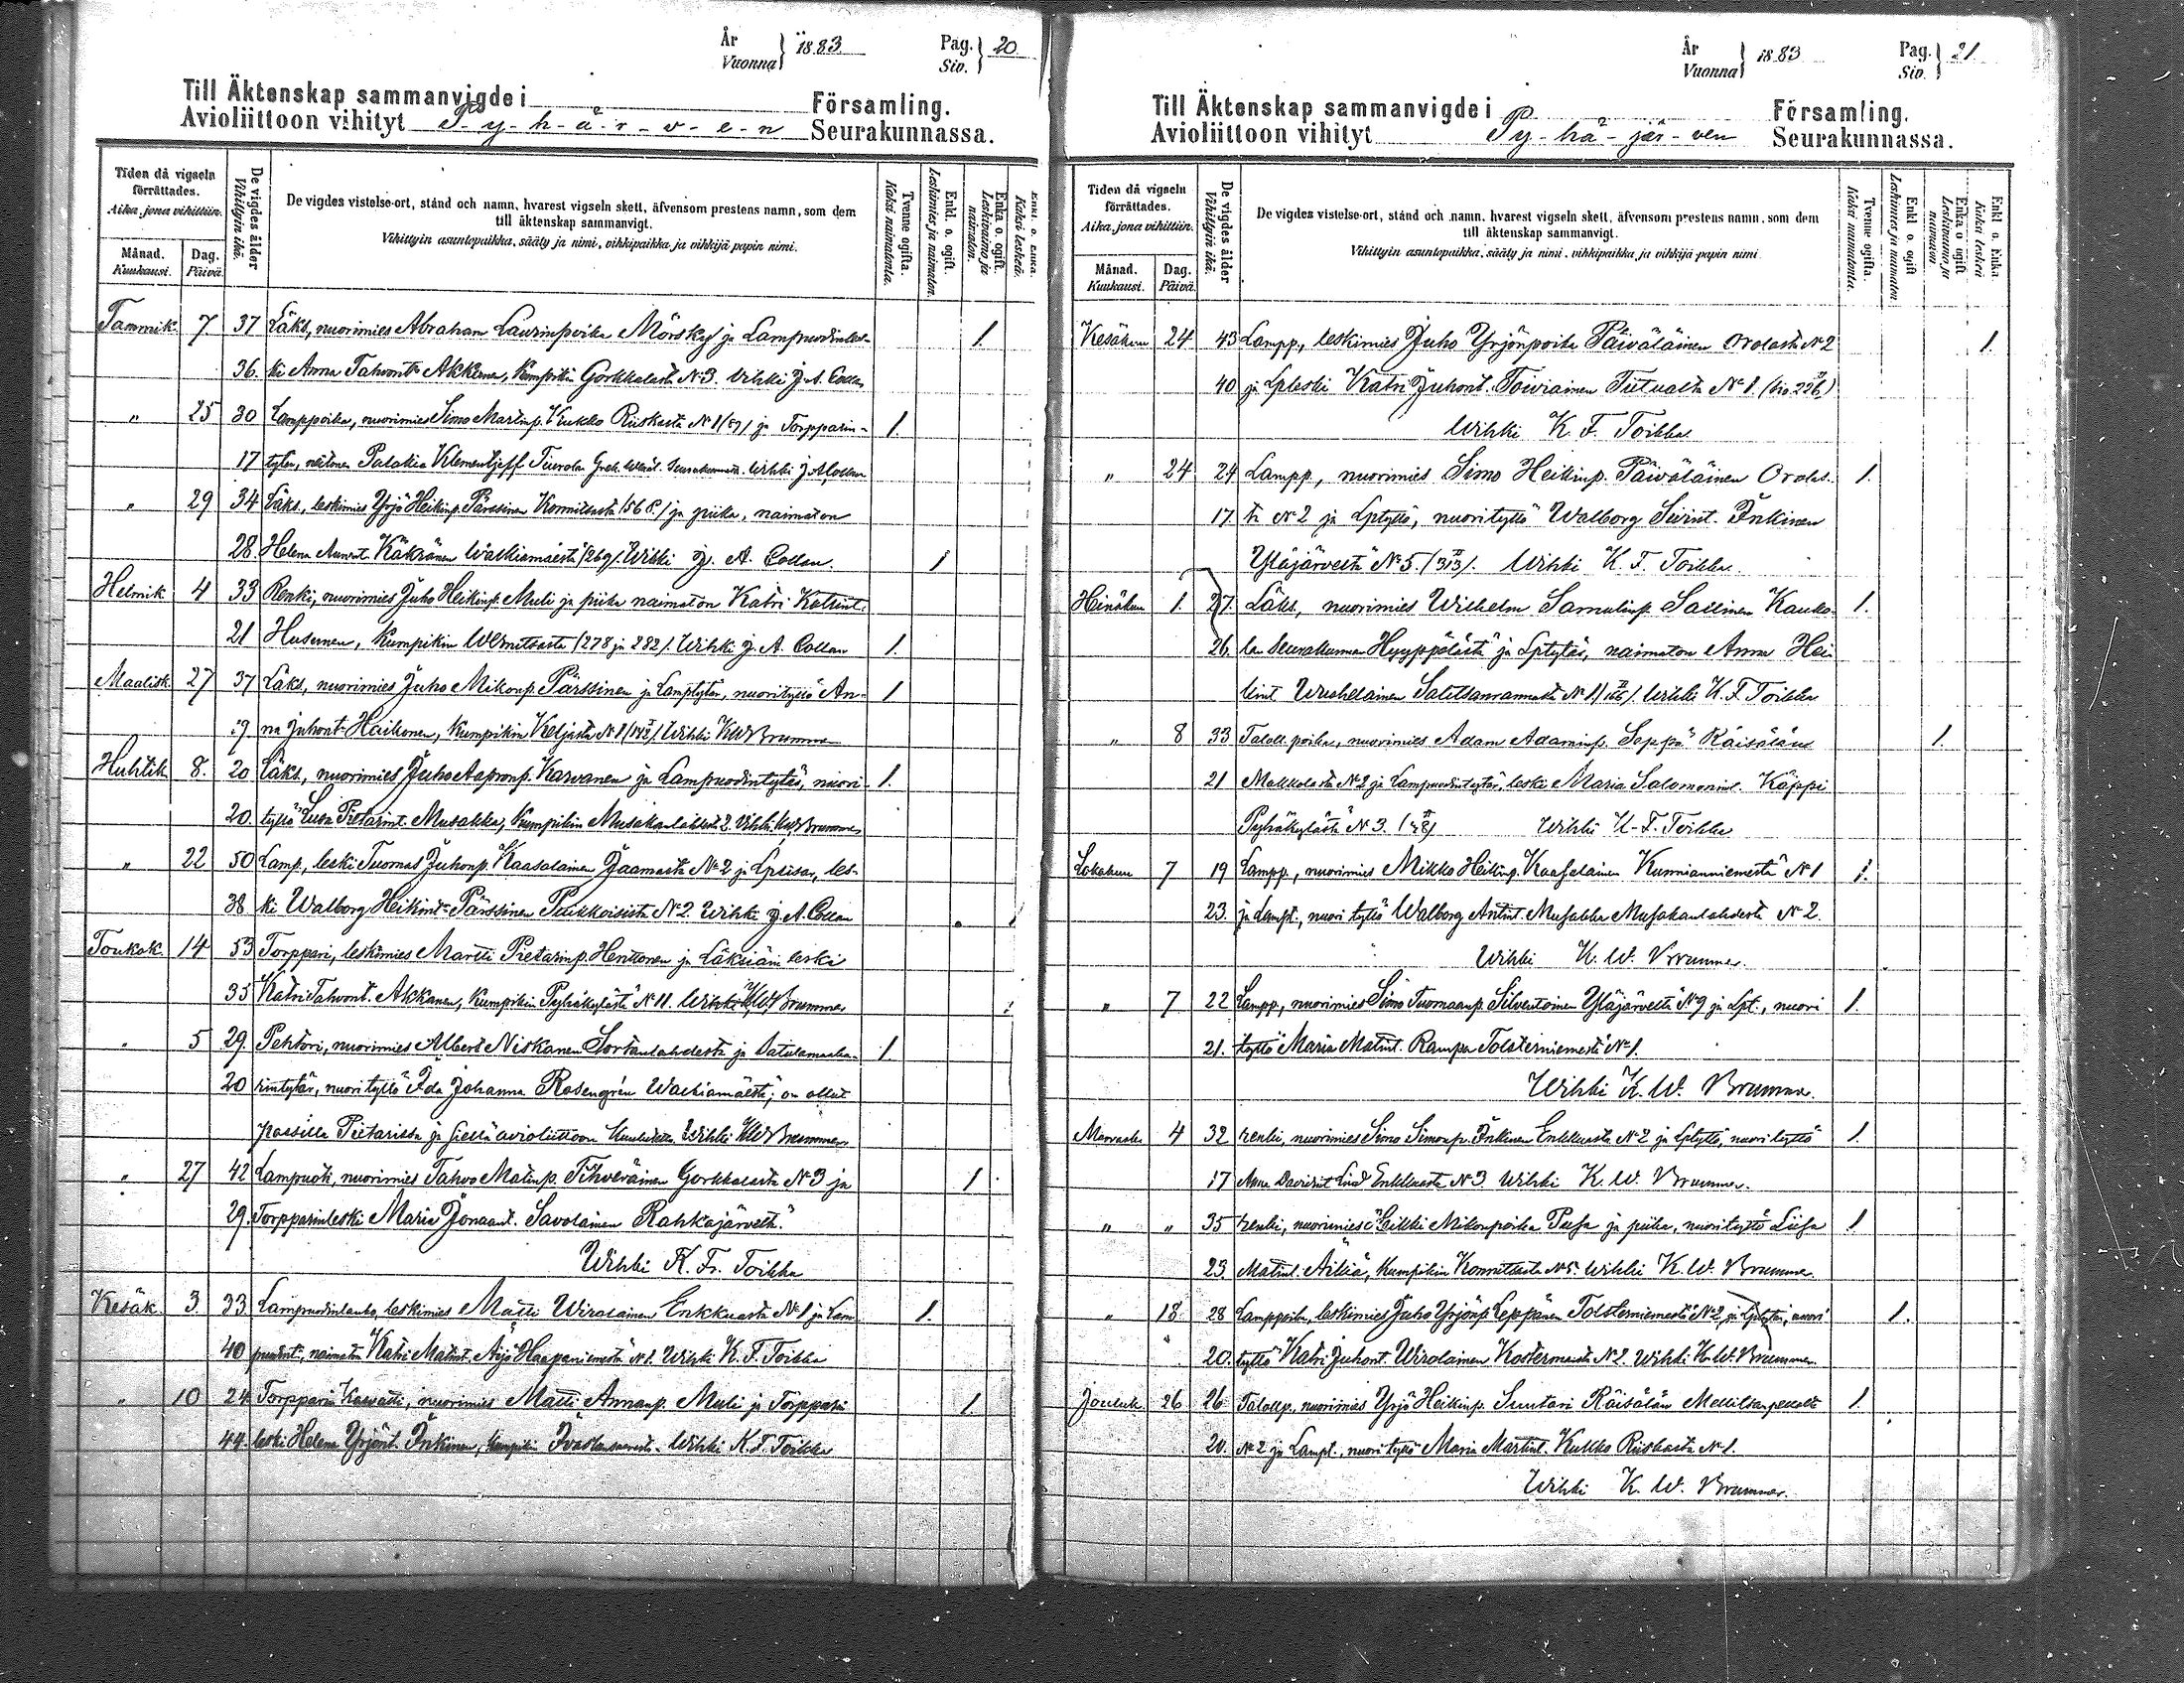 År
Vuonna
1883
Pag.
Siv.
20
Till Äktenskap sammanvigde i Församling.
Avioliittoon vihityt P-y-h-ä-r-v-e-n Seurakunnassa.
Tiden då vigseln förrättades.
Aika, jona vihittiin.
Månad.
Kuukausi.
Dag.
Päivä.
De vigdes ålder
Vihittyin ikä.
De vigdes vistelse-ort, stånd och namn, hvarest vigseln skett, äfvensom prestens namn, som dem
till äktenskap sammanvigt.
Vihittyin asuntopaikka, sääty ja nimi, vihkipaikka ja vihkijä papin nimi.
Tvenne ogifta.
Kaksi naimatonta.
Enkl. o. ogift.
Leskimies ja naimaton.
Enka o. ogift.
Leskivaimo ja naimaton.
Enkl. o. Enka.
Kaksi leskeä.
Tammik. 7 37 Läks, nuorimies Abraham Laurinpoika Mörsky ja Lampuodinles- 1.
36. ki Anna Tahvont. Akkanen, kumpikin Gorkkalasta N:3. Vihki J. A. Collan
" 25 30 Lamppoika, nuorimies Simo Martinp. Kukko Riiskasta N:1 ja Torpparin- 1.
17 tytär, neitonen Palakia Klementjeff Tiurolan Grek. Wenäl. Seurakunnasta. Wihki J. A. Collan
" 29 34 Läks., leskimies Yrjö Heikinp. Pärssinen Konnitsasta ja piika, naimaton
28. Helena Wäkiamäestä Wihki J. A. Collan. 1
Helmik. 4 33 Renki, nuorimies Juho Heikinp. Muli ja piika naimaton Katri
21 Husunen, kumpikin (278 ja 282). Wihki J. A. Collan 1.
Maalisk. 27 37 Läks, nuorimies Juho Mikonp. Pärssinen ja Lamptytär, nuorityttö An- 1
19 na Juhont. Haikonen, kumpikin Keljasta N:1 Wihki KW Brummer
Huhtik 8. 20 Läks, nuorimies Juho Aapronp. Karvanen ja Lampuodintytö, nuori- 1.
20. tyttö Liisa Pietarint. Musakka, kumpikin Musakanlahdesta 2. Vihki KW Brummer
" 22 50 Lamp, leski Tuomas Juhonp. Kaasalainen Jaamasta N:2 ja Lpiisar, les-
38 ki Walborg Heikint. Pärssinen Pukkoisista N:2. Wihki J. A. Collan
Toukok. 14 53 Torppari, leskimies Martti Pietarinp. Henttonen ja Läksiän leski
35 Katri Tahvont. Akkanen, kumpikin Pyhäkylästä N:11. Wihki KW Brummer
" 5 29. Pehtori, nuorimies Albert Niskanen Sortanlahdesta ja Satulamaaka- 1
20 rintytär, nuori tyttö Ida Johanna Rosengrén Wäkiamäestä; on ollut
passilla Pietarissa ja siellä avioliittoon kuulutettu Wihki KW Brummer
" 27 42 Lampuoti, nuorimies Tahvo Matinp. Tihveräinen Gorkkalasta N:3 ja 1
29. Torpparinleski Maria Jonaant. Savolainen Rahkajärveltä.
Wihki K. Fr. Toikka
Kesäk. 3. 33. Lampuodin, leskimies Matti Wirolainen Enkkuasta N:1 ja Lam 1.
40 puodint., naimaton Katri Matint. Äijö Haapaniemestä N:1. Wihki K. F. Toikka
" 10 24. Torpparin kasvatti, nuorimies Matti Annanp. Muli ja Torppari 1.
44. leski Helena Yrjönt. Inkinen, kumpikin Wihki K. F. Toikka
År
Vuonna
1883
Pag.
Siv.
21
Till Äktenskap sammanvigde i Församling.
Avioliittoon vihityt Py-hä-jär-ven Seurakunnassa.
Tiden då vigseln förrättades.
Aika, jona vihittiin.
Månad.
Kuukausi.
Dag.
Päivä.
De vigdes ålder
Vihittyin ikä.
De vigdes vistelse-ort, stånd och namn, hvarest vigseln skett, äfvensom prestens namn, som dem
till äktenskap sammanvigt.
Vihittyin asuntopaikka, sääty ja nimi, vihkipaikka ja vihkijä papin nimi.
Tvenne ogifta.
Kaksi naimatonta.
Enkl o. ogift
Leskimies ja naimaton
Enka o ogift
Leskivaimo ja naimaton
Enkl o. Enka
Kaksi leskeä
Kesäkuu 24 43 Lampp., leskimies Juho Yrjönpoika Päiväläinen Orolasta N:2 1.
40 ja Lpleski Katri Juhont. Toiviainen Tiitualta N:1. (siv. 226)
Wihki K F. Toikka.
" 24 24 Lampp, nuorimies Simo Heikinp. Päiväläinen Orolas- 1.
17. ta N:2 ja Lptyttö, nuorityttö Walborg Sivint. Inkinen
Yläjärvestä N:5. (313). Wihki K. F. Toikka.
Heinäkuu 1. 27. Läks, nuorimies Wilhelm Samulinp. Sallinen Kauko- 1.
26. lan Seurakunnan Hyyppölästä ja Lptytär, naimaton Anna Hei
kint. Salitsanrannasta N:1 (166). Wihki K. F. Toikka
" 8 33 Taloll. poika, nuorimies Adam Adaminp. Seppä Räisälän 1.
21 Makkolasta N:2 ja Lampuodintytär, leski Maria Salomonint. Käppi
Pyhäkylästä N:3. Wihki K. F. Toikka
Lokakuu 7 19 Lampp., nuorimies Mikko Heikinp. Kaasalainen Kunnianniemestä N:1 1.
23. ja Lampt., nuori tyttö Walborg Antint. Musakka Musakanlahdesta N:2.
Wihki K. W. Brummer.
" 7 22 Lampp, nuorimies Simo Tuomaanp. Silventoinen Yläjärveltä N:9 ja Lpt., nuori 1.
21. tyttö Maria Matint. Rampa Tolsterniemestä N:1.
Wihki K. W. Brummer.
Marrask. 4 32 renki, nuorimies Simo Simonp. Inkinen Enkkuasta N:2 ja Lptyttö, nuori tyttö 1.
17 Anna Davidint. Lind Enkkuasta N:3. Wihki K. W. Brummer.
" " 35 renki, nuorimies Heikki Mikonpoika Pusa ja piika, nuorityttö Liisa 1
23. Matint. Äikiä, kumpikin Konnitsasta N:5. Wihki K. W. Brummer
" 18 28 Lamppoika, leskimies Juho Yrjönp. Leppänen Tolsterniemestä N:2, ja Lptytär, nuori 1.
20. tyttö Katri Juhont. Wirolainen Kostermaasta N:2. Wihki K. W. Brummer.
Jouluk. 26 26 Talollp. nuorimies Yrjö Heikinp. Suutari Räisälän 1.
20. N:2 ja Lampt., nuori tyttö Maria Martint. Kukko Riiskasta N:1.
Wihki K. W. Brummer.